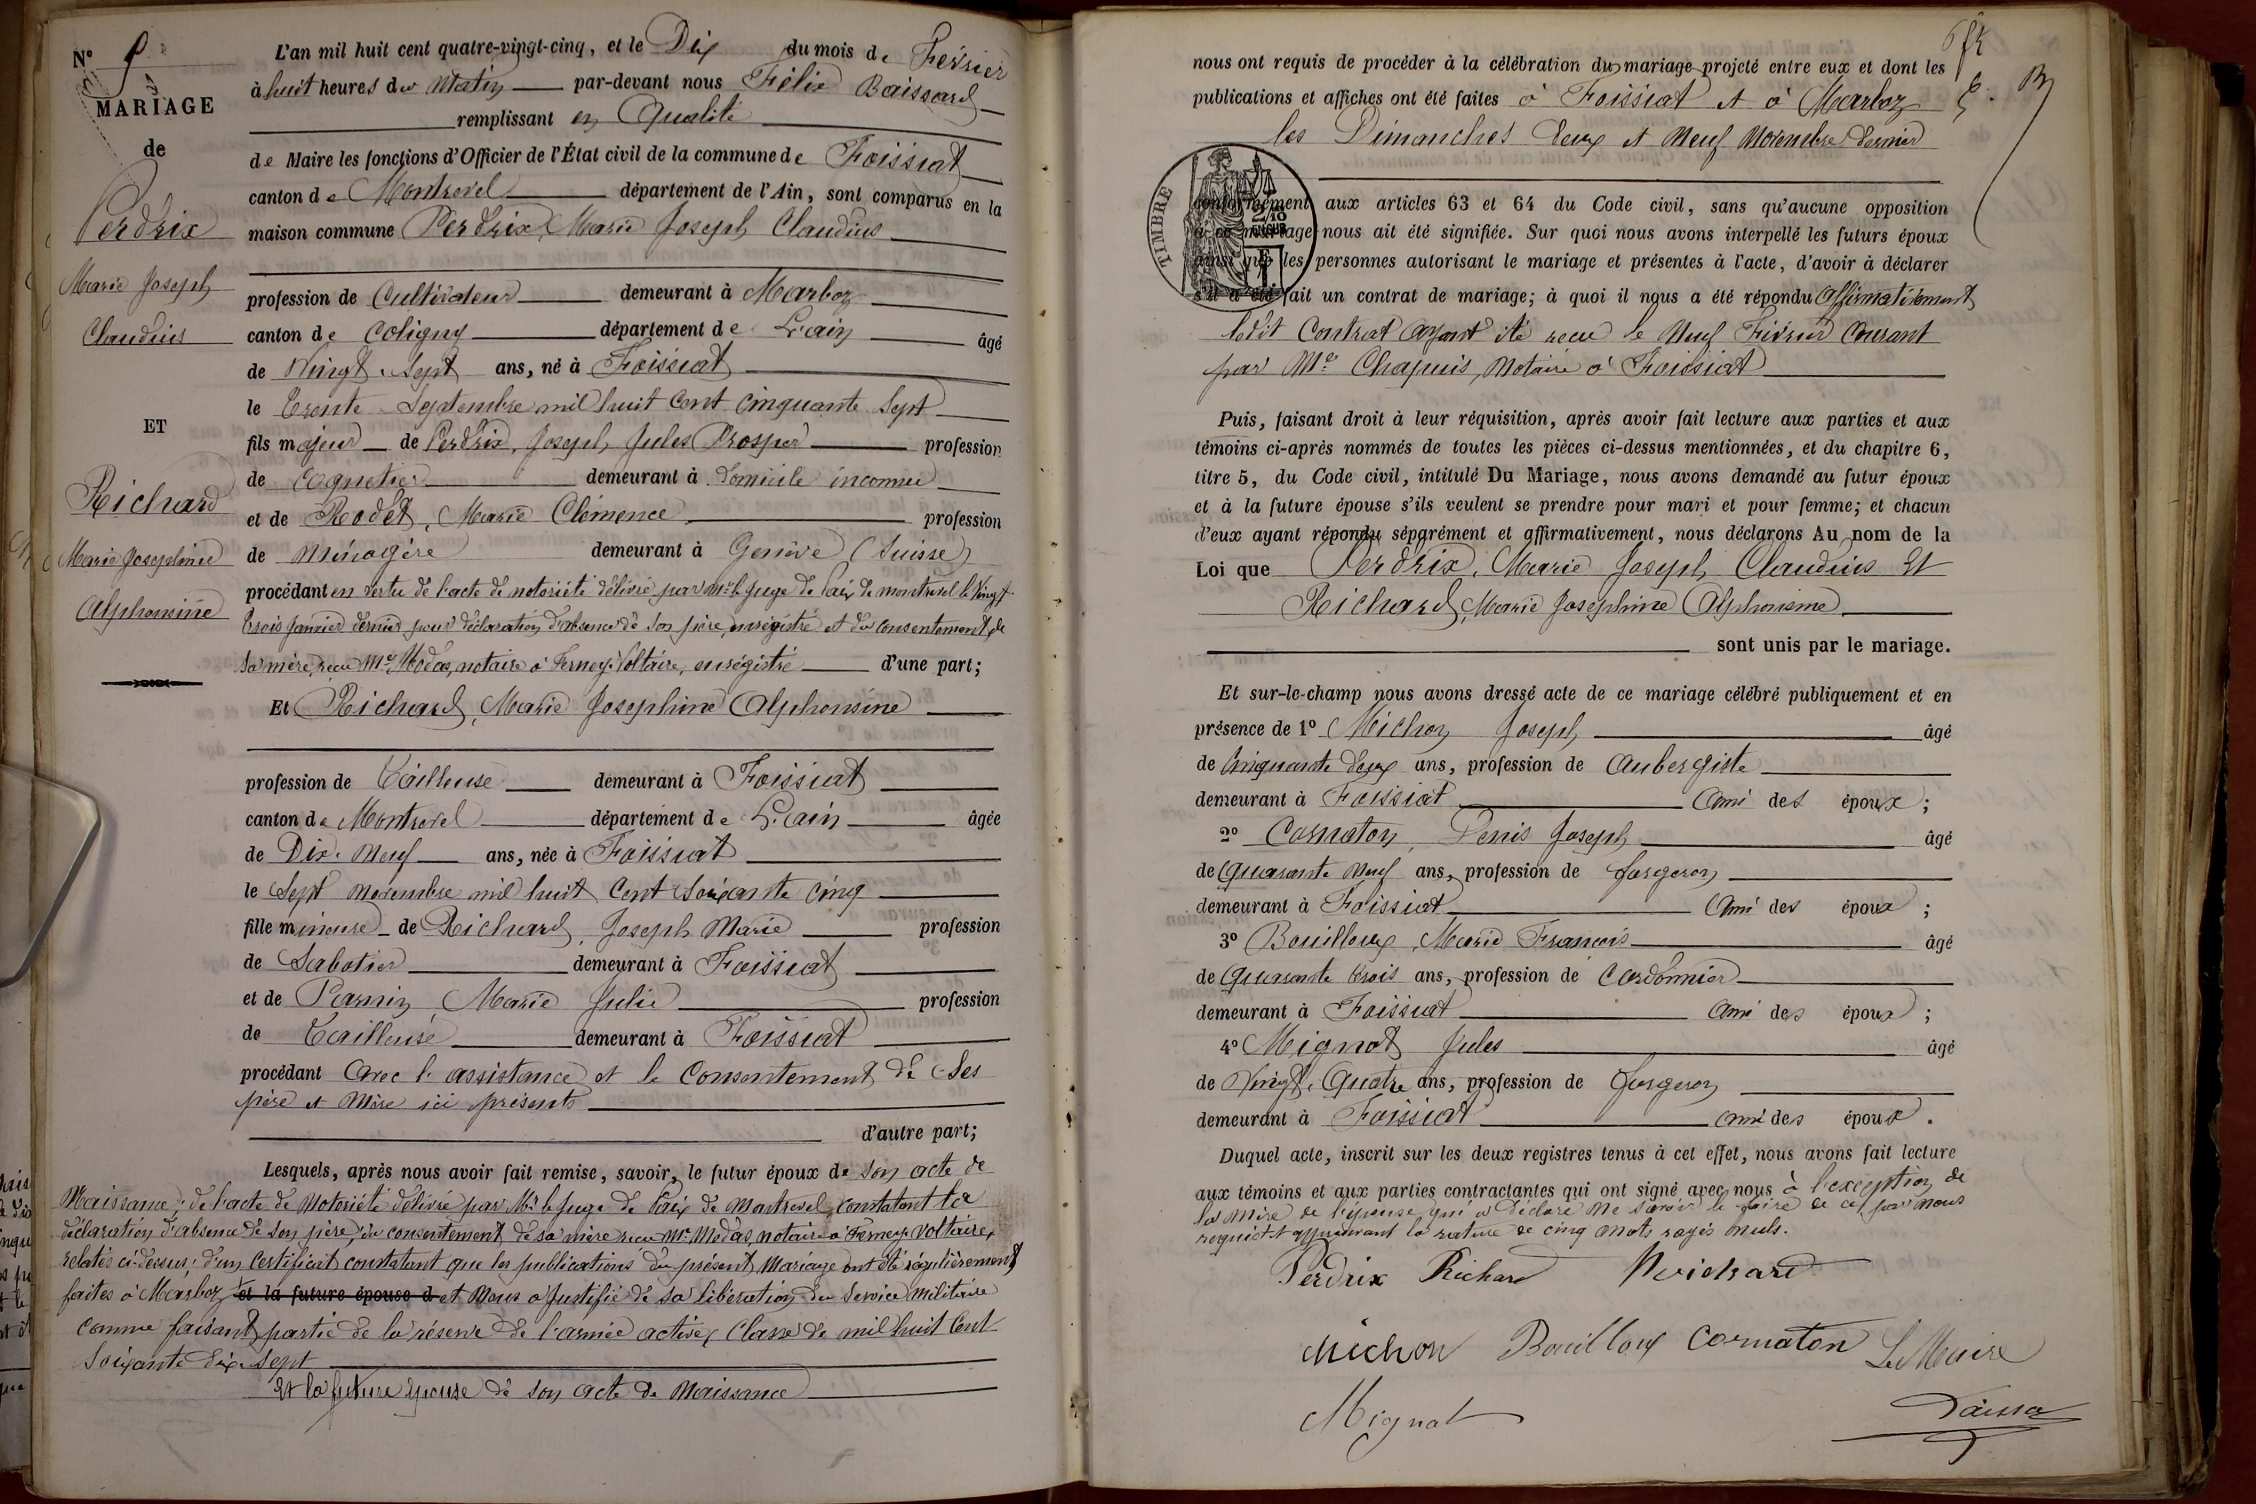 N° 9
MARIAGE
de
Perdrix
Marie Joseph
Claudius
ET
Richard
Marie Josephine
Alphonsine
L'an mil huit cent quatre-vingt-cinq, et le Dix du mois de Février
à huit heures du Matin par-devant nous Félix Baissard
remplissant en Qualité
de Maire les fonctions d'Officier de l'État civil de la commune de Foissiat
canton de Montrevel département de l'Ain, sont comparus en la
maison commune Perdrix, Marie Joseph Claudius
profession de Cultivateur demeurant à Marboz
canton de Coligny département de L'ain âgé
de Vingt-Sept ans, né à Foissiat
le Trente Septembre mil huit Cent Cinquante Sept
fils majeur de Perdrix, Joseph Jules Prosper profession
de Coquetier demeurant à Domicile inconnu
et de Rodet, Marie Clémence profession
de Ménagère demeurant à Genève (Suisse)
procédant en vertu de l'acte de notoriété délivré par Mr le Juge de Paix de Montrevel le Vingt-
Trois Janvier dernier pour déclaration d'absence de son père, enregistré et du consentement de
sa mère, reçu Me Modas, notaire à Ferney-Voltaire, enrégistré d'une part;
Et Richard, Marie Josephine Alphonsine
profession de Tailleuse demeurant à Foissiat
canton de Montrevel département de L'ain âgée
de Dix-Neuf ans, née à Foissiat
le Sept Novembre mil huit Cent Soixante Cinq
fille mineure de Richard, Joseph Marie profession
de Sabotier demeurant à Foissiat
et de Parnin Marie Julie profession
de Tailleuse demeurant à Foissiat
procédant Avec l'assistance et le Consentement de Ses
père et Mère ici présents
d'autre part;
Lesquels, après nous avoir fait remise, savoir, le futur époux de son acte de
Naissance; de l'acte de Notoriété délivré par Mr le Juge de Paix de Montrevel, constatant la
déclaration d'absence de son père, du consentement de sa mère reçu Me Modas, notaire à Ferney-Voltaire,
relatés ci-dessus; d'un Certificat constatant que les publications du présent Mariage ont été régulièrement
faites à Marboz et la future épouse d et Nous a Justifié de sa libération du Service Militaire
comme faisant partie de la réserve de l'armée active, Classe de mil huit Cent
Soixante dix-sept
Et la future épouse de son acte de Naissance
nous ont requis de procéder à la célébration du mariage projeté entre eux et dont les
publications et affiches ont été faites à Foissiat et à Marboz
les Dimanches Deux et Neuf Novembre dernier
TIMBRE
conformément aux articles 63 et 64 du Code civil, sans qu'aucune opposition
à ce mariage nous ait été signifiée. Sur quoi nous avons interpellé les futurs époux
ainsi que les personnes autorisant le mariage et présentes à l'acte, d'avoir à déclarer
s'il a été fait un contrat de mariage; à quoi il nous a été répondu affirmativement
ledit Contrat ayant été reçu le Neuf Février Courant
par Me Chapuis, Notaire à Foissiat
Puis, faisant droit à leur réquisition, après avoir fait lecture aux parties et aux
témoins ci-après nommés de toutes les pièces ci-dessus mentionnées, et du chapitre 6,
titre 5, du Code civil, intitulé Du Mariage, nous avons demandé au futur époux
et à la future épouse s'ils veulent se prendre pour mari et pour femme; et chacun
d'eux ayant répondu séparément et affirmativement, nous déclarons Au nom de la
Loi que Perdrix, Marie Joseph Claudius Et
Richard, Marie Josephine Alphonsine
sont unis par le mariage.
Et sur-le-champ nous avons dressé acte de ce mariage célébré publiquement et en
présence de 1° Michon Joseph âgé
de Cinquante Deux ans, profession de Aubergiste
demeurant à Foissiat Ami des époux;
2° Cornaton, Denis Joseph âgé
de Quarante Neuf ans, profession de forgeron
demeurant à Foissiat Ami des époux;
3° Bouilloux, Marie François âgé
de Quarante trois ans, profession de Cordonnier
demeurant à Foissiat Ami des époux;
4° Mignot Jules âgé
de Vingt-Quatre ans, profession de forgeron
demeurant à Foissiat ami des époux.
Duquel acte, inscrit sur les deux registres tenus à cet effet, nous avons fait lecture
aux témoins et aux parties contractantes qui ont signé avec nous à l'exception de
la Mère de l'épouse qui a Déclaré Ne Savoir le faire de ce par nous
requis et approuvant la rature de cinq mots rayés nuls.
Perdrix Richard M Richard
Michon Bouilloux Cornaton Le Maire
Mignot